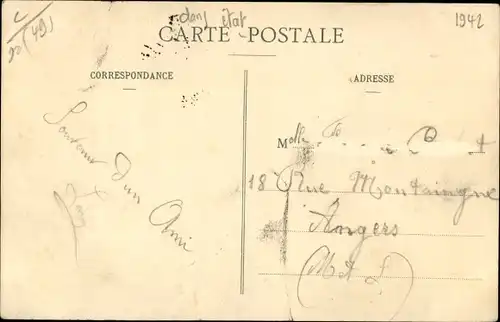 dans état
1942
CARTE POSTALE
CORRESPONDANCE
ADRESSE
Souvenir d'un Ami
Mlle
18 Rue Montaigne
Angers
(M et L)